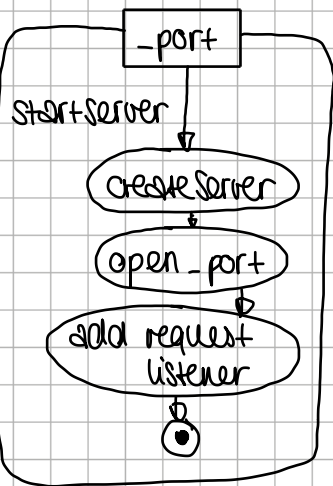 _port
startserver
createServer
open_port
add request
listener